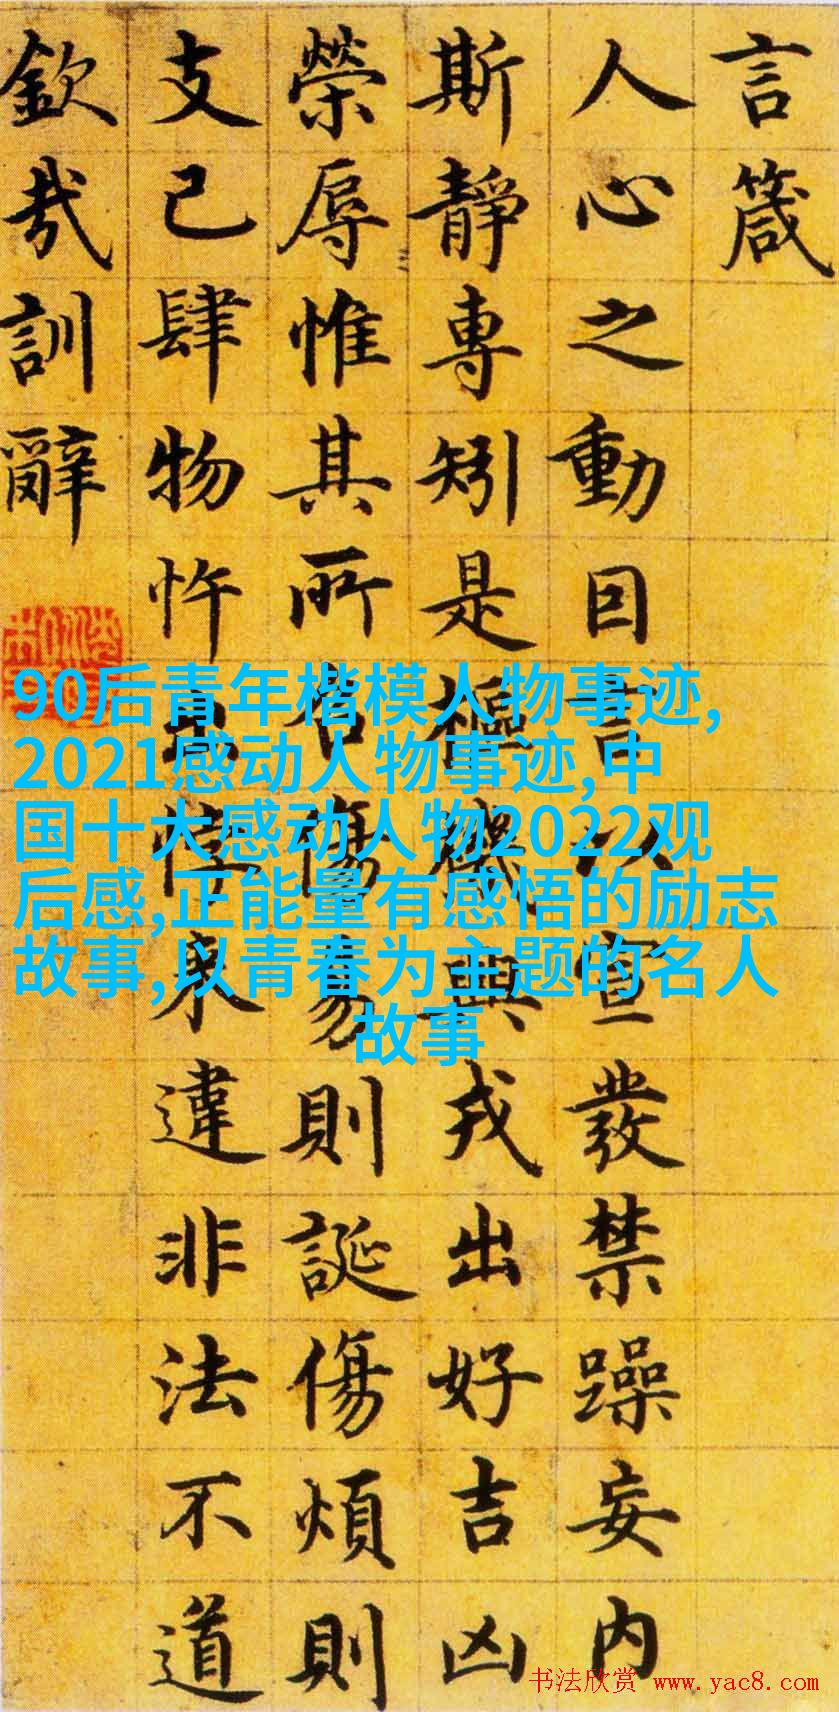 言箴
人心之動因言以宣發禁躁妄内
斯靜專矧是樞機興戎出好吉凶
榮辱惟其所召傷易則誕傷煩則
支己肆物忤出悖来違非法不道
欽哉訓辭
90后青年楷模人物事迹,
2021感动人物事迹,中
国十大感动人物2022观
后感,正能量有感悟的励志
故事,以青春为主题的名人
故事
书法欣赏 www.yac8.com